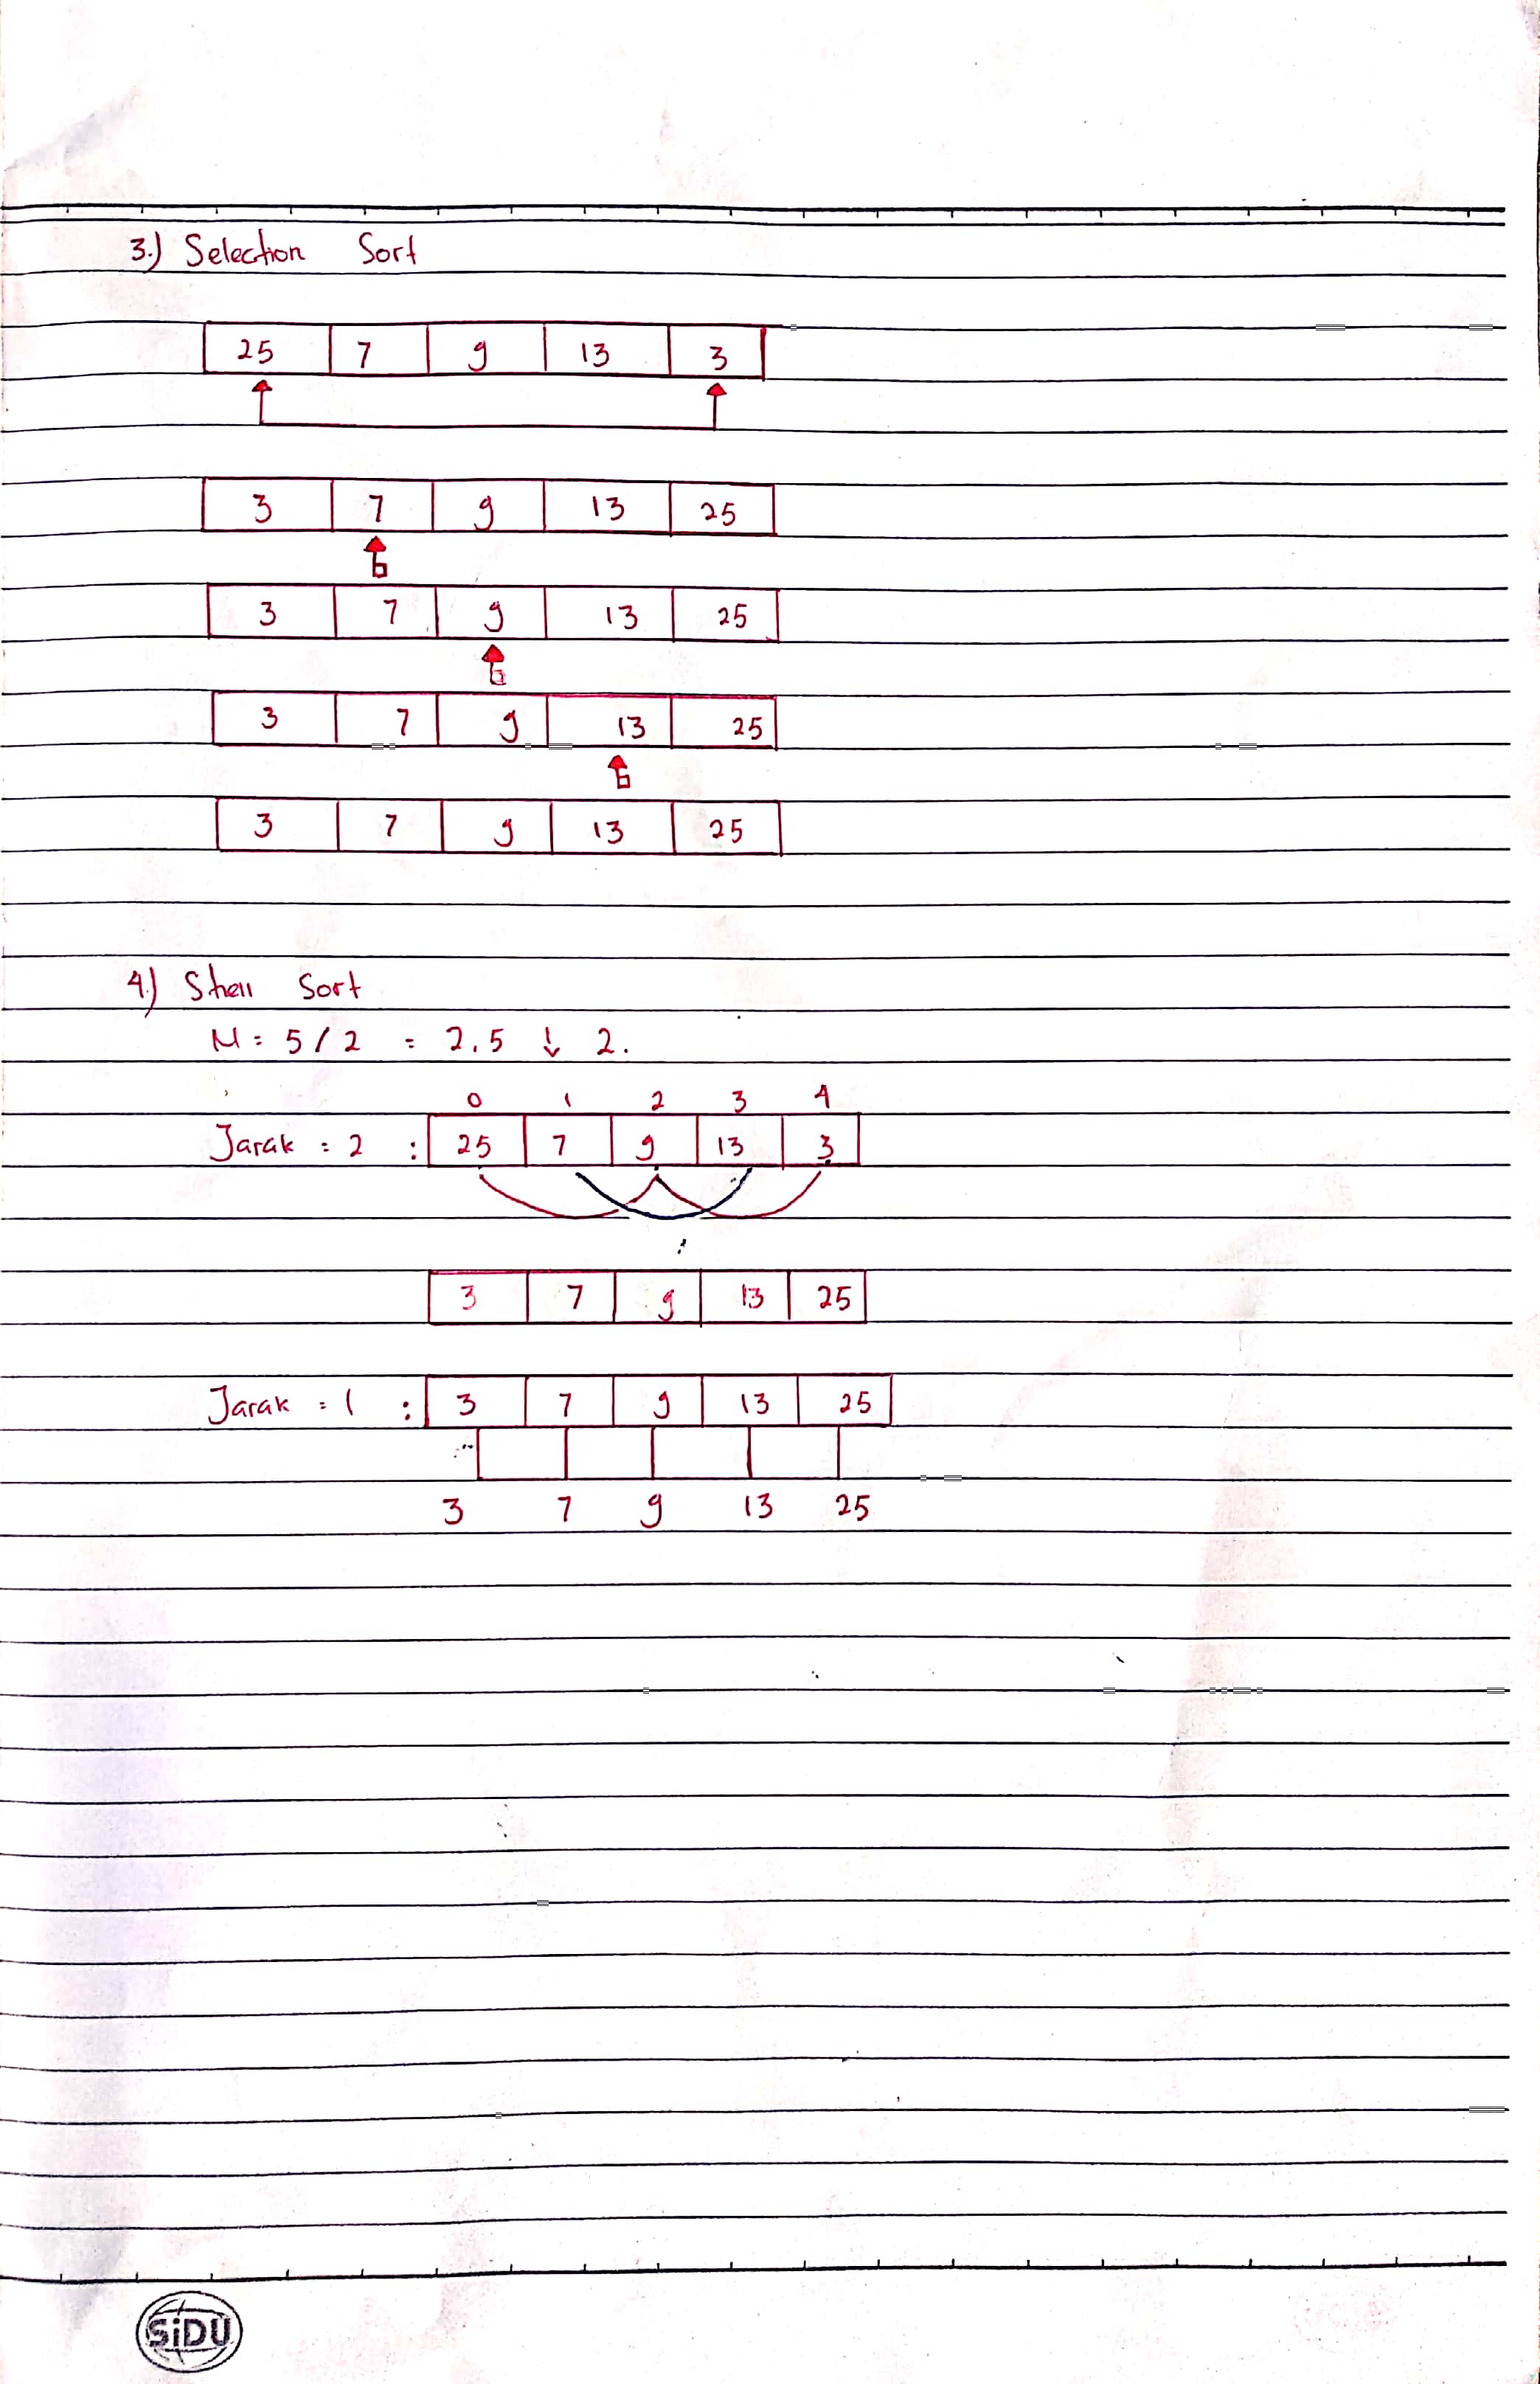 3.) Selection Sort
25 7 9 13 3
3 7 9 13 25
3 7 9 13 25
3 7 9 13 25
3 7 9 13 25
4.) Shell Sort
N = 5 / 2 = 2.5 ↓ 2.
0 1 2 3 4
Jarak = 2 : 25 7 9 13 3
3 7 9 13 25
Jarak = 1 : 3 7 9 13 25
3 7 9 13 25
SiDU